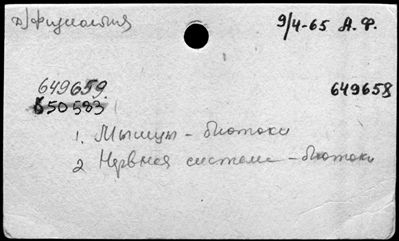 д/физиология 9/4-65 А.Ф.
649659. 649658
850583
1. Мышцы - биотоки
2 Нервная система - биотоки